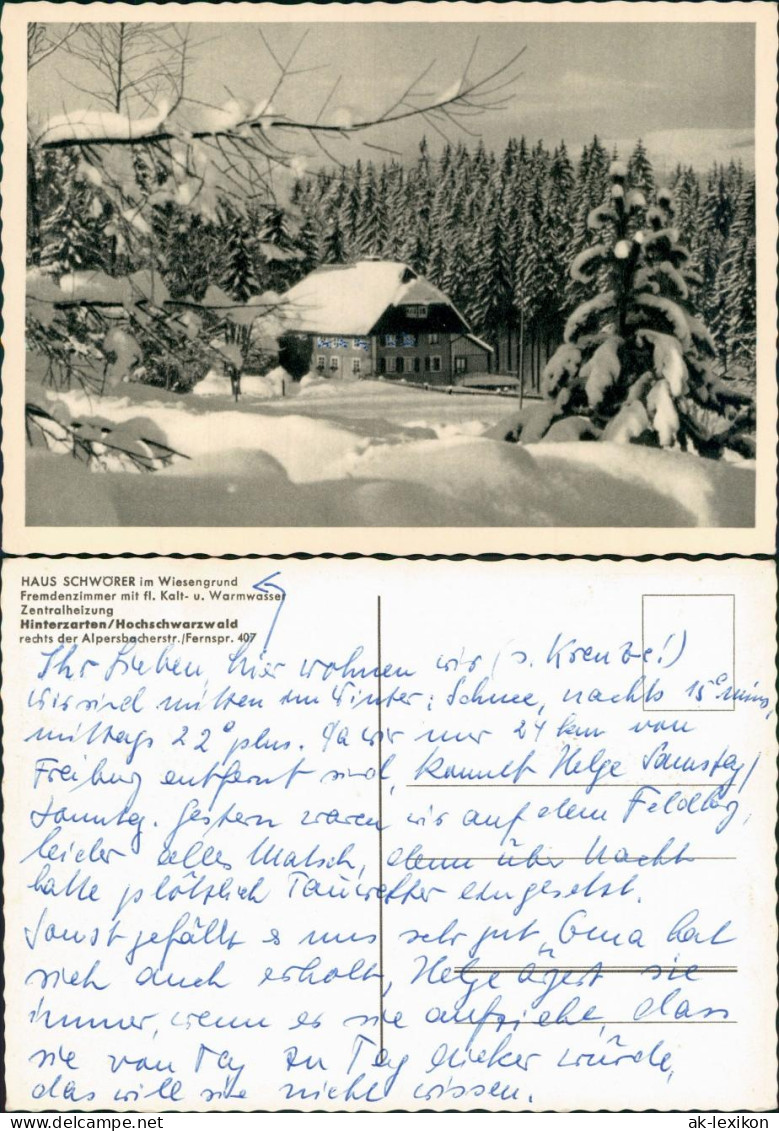 HAUS SCHWÖRER im Wiesengrund
Fremdenzimmer mit fl. Kalt- u. Warmwasser
Zentralheizung
Hinterzarten/Hochschwarzwald
rechts der Alpersbacherstr./Fernspr. 407
Ihr Lieben, hier wohnen wir (s. Kreuze!)
Wir sind mitten im Winter: Schnee, nachts 15° minus,
mittags 22° plus. Da wir nur 24 km von
Freiburg entfernt sind, kommt Helge Samstag/
Sonntag. Gestern waren wir auf dem Feldberg,
leider alles Matsch, denn über Nacht
hatte plötzlich Tauwetter eingesetzt.
Sonst gefällt es uns sehr gut, Oma hat
sich auch erholt, Helge ärgert sie
immer, wenn er sie aufzieht, dass
sie von Tag zu Tag dicker würde,
das will sie nicht wissen.
www.delcampe.net
ak-lexikon